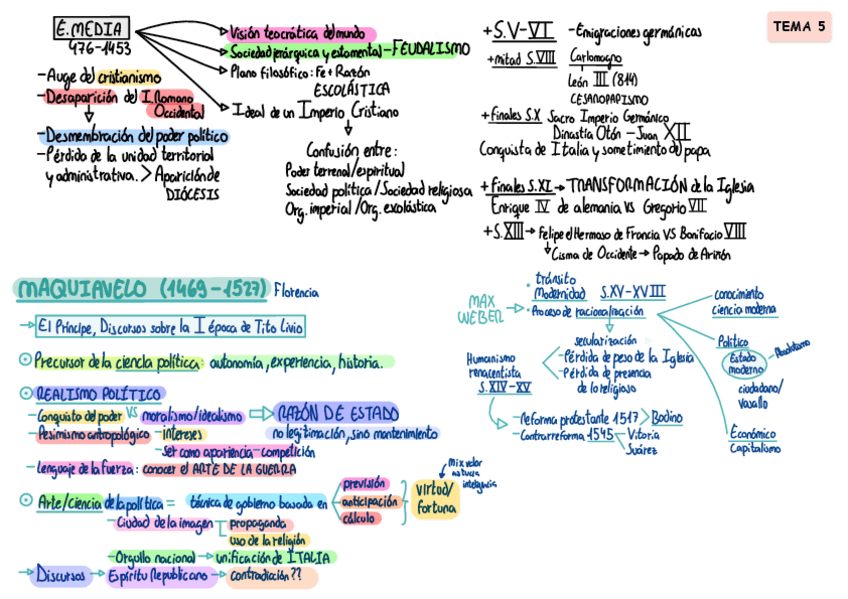 TEMA 5
E. MEDIA
476-1453
-Auge del cristianismo
-Desaparición del I. Romano
Occidental
-Desmembración del poder político
-Pérdida de la unidad territorial
y administrativa. > Aparición de
DIÓCESIS
Visión teocrática del mundo
Sociedad jerárquica y estamental-FEUDALISMO
Plano filosófico: Fe+Razón
ESCOLÁSTICA
Ideal de un Imperio Cristiano
Confusión entre:
Poder terrenal/espiritual
Sociedad política/Sociedad religiosa
Org. imperial/Org. exolástica
+S.V-VI -Emigraciones germánicas
+mitad S.VIII Carlomagno
León III (814)
CESAROPAPISMO
+finales S.X Sacro Imperio Germánico
Dinastía Otón - Juan XII
Conquista de Italia y sometimiento del papa
+finales S.XI → TRANSFORMACIÓN de la Iglesia
Enrique IV de alemania VS Gregorio VII
+S.XIII → Felipe el Hermoso de Francia VS Bonifacio VIII
Cisma de Occidente → Papado de Aviñón
MAQUIAVELO (1469-1527) Florencia
→ El Príncipe, Discursos sobre la I época de Tito Livio
Precursor de la ciencia política: autonomía, experiencia, historia.
REALISMO POLÍTICO
-Conquista del poder VS moralismo/idealismo ⇒ RAZÓN DE ESTADO
no legitimación, sino mantenimiento
-Pesimismo antropológico -intereses
-ser como apariencia-competición
-Lenguaje de la fuerza: conocer el ARTE DE LA GUERRA
Arte/Ciencia de la política = técnica de gobierno basada en
previsión
anticipación
cálculo
virtud/
fortuna
mix valor
astucia
inteligencia
-Ciudad de la imagen
propaganda
uso de la religión
-Orgullo nacional → unificación de ITALIA
→ Discursos → Espíritu Republicano → contradicción??
MAX
WEBER
· tránsito
Modernidad S.XV-XVIII
· Proceso de racionalización
secularización
-Pérdida de peso de la Iglesia
-Pérdida de presencia
de lo religioso
Humanismo
renacentista
S.XIV-XV
-Reforma protestante 1517 > Bodino
-Contrarreforma 1545
Vitoria
Suárez
conocimiento
ciencia moderna
Político
Estado
moderno
ciudadano/
vasallo
Económico
Capitalismo